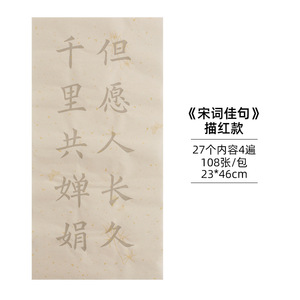 但愿人长久
千里共婵娟
《宋词佳句》
描红款
27个内容4遍
108张/包
23*46cm